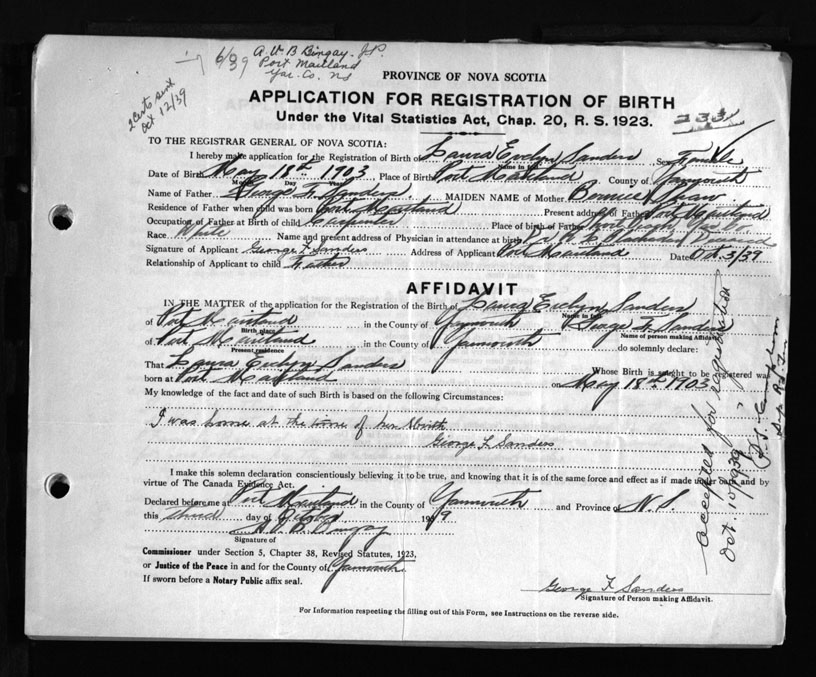 6/39 A. W. B. Bingay. J.P.
Port Maitland
Yar. Co. NS
2 Certs sent
Oct 12/39
PROVINCE OF NOVA SCOTIA
APPLICATION FOR REGISTRATION OF BIRTH
Under the Vital Statistics Act, Chap. 20, R. S. 1923.
TO THE REGISTRAR GENERAL OF NOVA SCOTIA:
I hereby make application for the Registration of Birth of Laura Evelyn Sanders Sex Female
Name in full
Date of Birth May 18th 1903 Place of Birth Port Maitland County of Yarmouth
Month Day Year
Name of Father George F. Sanders MAIDEN NAME of Mother Bernice Shaw
Residence of Father when child was born Port Maitland Present address of Father Port Maitland
Occupation of Father at Birth of child Carpenter Place of birth of Father Yar. Co.
Race White Name and present address of Physician in attendance at birth
Signature of Applicant George F Sanders Address of Applicant Port Maitland Date Oct. 3/39
Relationship of Applicant to child Father
AFFIDAVIT
IN THE MATTER of the application for the Registration of the Birth of Laura Evelyn Sanders
Name in full
of Port Maitland in the County of Yarmouth George F. Sanders
Birth place Name of person making Affidavit
of Port Maitland in the County of Yarmouth do solemnly declare:
Present residence
That Laura Evelyn Sanders Whose Birth is sought to be registered was
born at Port Maitland on May 18th 1903
My knowledge of the fact and date of such Birth is based on the following Circumstances:
I was home at the time of her birth
George F Sanders
I make this solemn declaration conscientiously believing it to be true, and knowing that it is of the same force and effect as if made under oath, and by
virtue of The Canada Evidence Act.
Declared before me at Port Maitland in the County of Yarmouth and Province of N. S.
this third day of October 1939
A. W. B. Bingay
Signature of
Commissioner under Section 5, Chapter 38, Revised Statutes, 1923,
or Justice of the Peace in and for the County of Yarmouth
If sworn before a Notary Public affix seal.
George F Sanders
Signature of Person making Affidavit.
For Information respecting the filling out of this Form, see Instructions on the reverse side.
accepted for registration
Oct. 10/1939